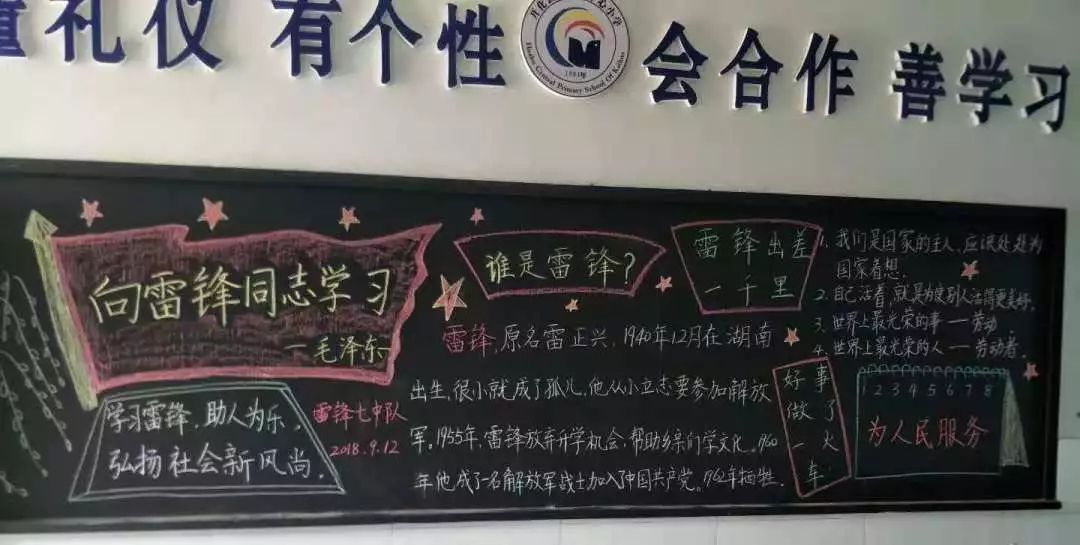 礼仪 有个性 会合作 善学习
1984年
Central Primary School Of Kaihua
向雷锋同志学习
一毛泽东
学习雷锋，助人为乐，
弘扬社会新风尚．
雷锋七中队
2018.9.12
谁是雷锋？
雷锋，原名雷正兴，1940年12月在湖南
出生，很小就成了孤儿，他从小立志要参加解放
军。1955年，雷锋放弃升学机会，帮助乡亲们学文化。1960
年他成了一名解放军战士加入了中国共产党。1962年牺牲．
雷锋出差
一千里
好事
做了
一火
车
1. 我们是国家的主人，应该处处为
国家着想．
2. 自己活着，就是为使别人活得更美好．
3. 世界上最光荣的事——劳动．
4. 世界上最光荣的人——劳动者．
1 2 3 4 5 6 7 8
为人民服务